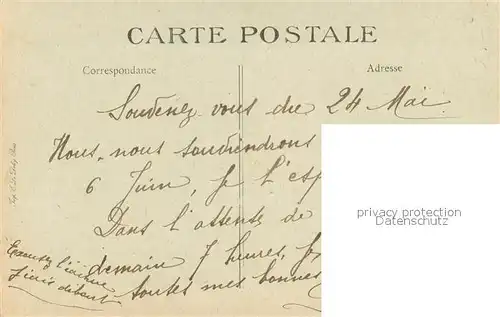 CARTE POSTALE
Correspondance
Adresse
Souvenez vous du 24 Mai
Nous, nous souviendrons
6 Juin, je l'esp
Dans l'attente de
demain 7 heures, je
toutes mes bonnes
Excusez l'écriture
j'écris debout
privacy protection
Datenschutz